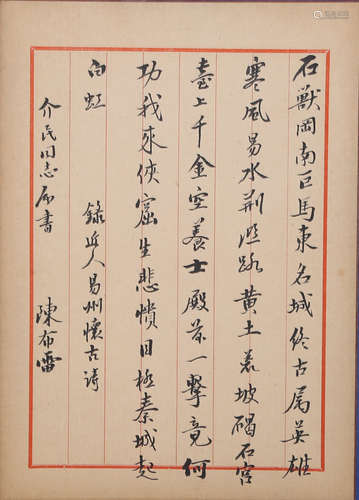 石獸岡南巨馬東名城終古屬英雄
寒風易水荊卿路黃土坡碣石宮
臺上千金空養士殿前一擊竟何
功我來俠窟生悲憤目極秦城起
白虹
錄近人易州懷古詩
介民同志屬書
陳布雷